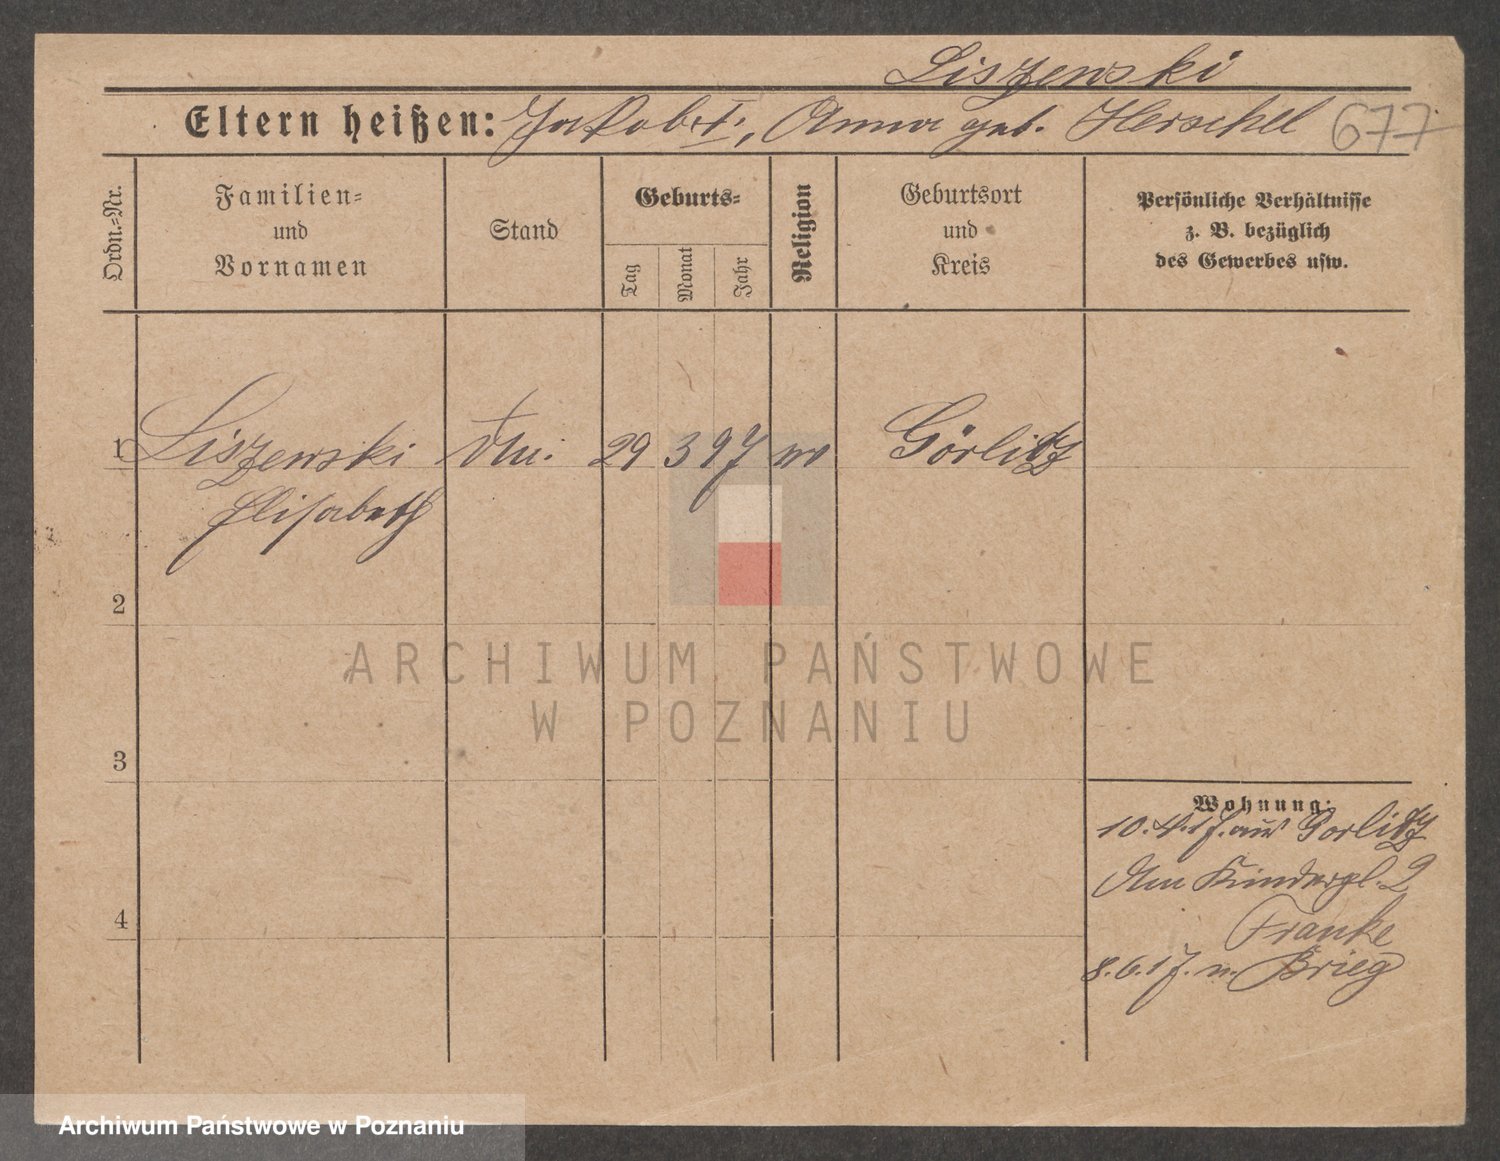 Liszewski
Eltern heißen: Jakob †, Anna geb. Herschel 677
Ordn.=Nr.
Familien=
und
Vornamen
Stand
Geburts=
Tag
Monat
Jahr
Religion
Geburtsort
und
Kreis
Persönliche Verhältnisse
z. B. bezüglich
des Gewerbes usw.
1 Liszewski 29 3 97 Görlitz
Elisabeth
2
3
4
ARCHIWUM PAŃSTWOWE
W POZNANIU
Wohnung:
10.4.17. aus Görlitz
Am 2
Franke
8.6.17. n. Brieg
Archiwum Państwowe w Poznaniu